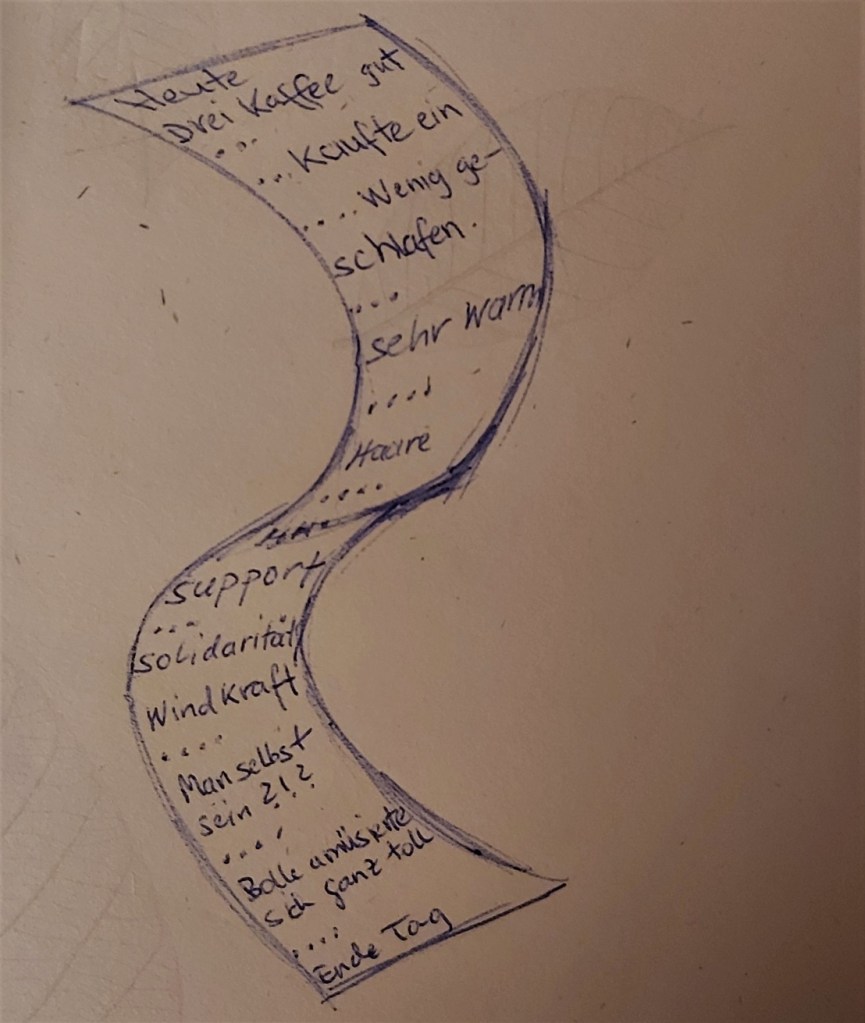 Heute
Drei Kaffee gut
...
...Kaufte ein
....Wenig ge-
schlafen.
...
sehr warm
....
Haare
....
support
...
solidarität
Windkraft
....
Man selbst
sein ?!?
....
Bolle amüsierte
sich ganz toll
....
Ende Tag